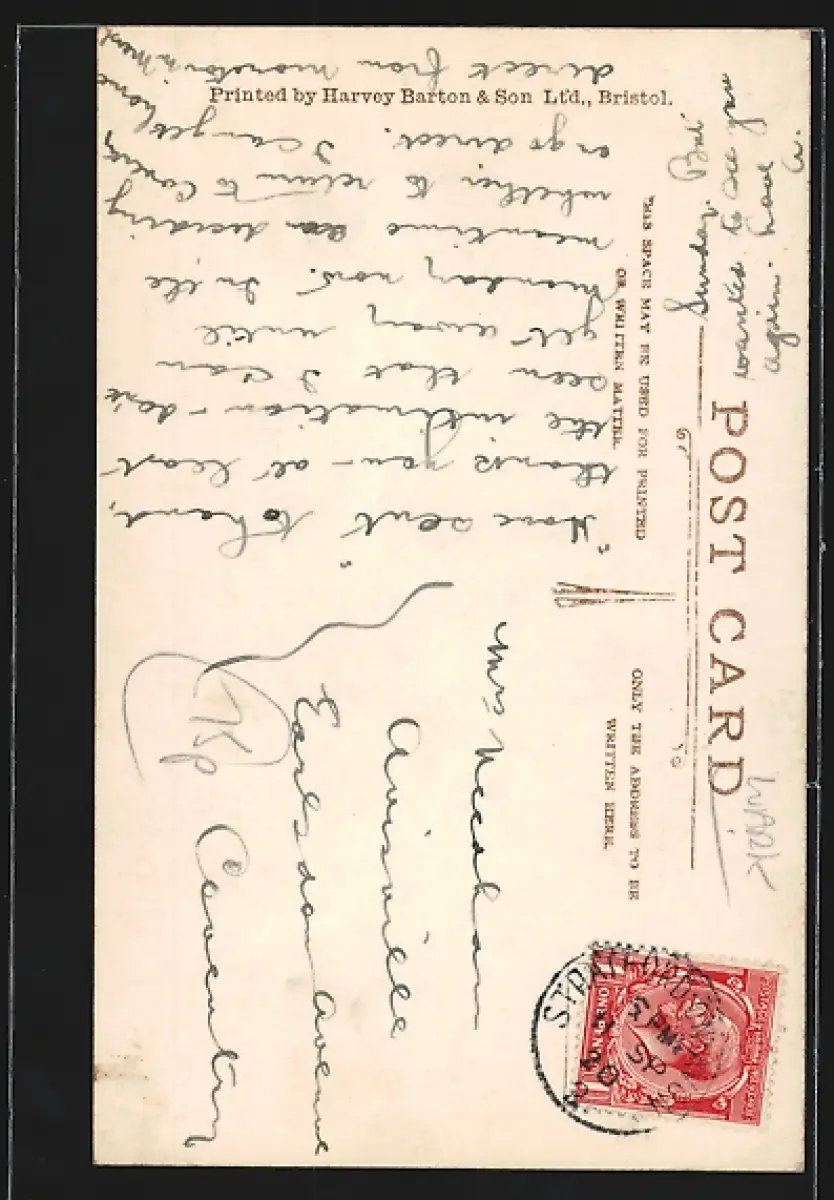 POST CARD
THIS SPACE MAY BE USED FOR PRINTED
OR WRITTEN MATTER.
ONLY THE ADDRESS TO BE
WRITTEN HERE.
Printed by Harvey Barton & Son Ltd., Bristol.
"Home sent" to hand,
thanks you - at least
the information - to's
seen that I can
get away until
Monday now. In the
meantime am deciding
whether to return to Coventry
or go direct. I can get home
direct from Moreton in
Sunday. But
wanted to see you
again. Love
a.
Mrs Needham
Avisville
Earlsdon Avenue
Coventry
Kp
STRATFORD
5 PM
ONE PENNY